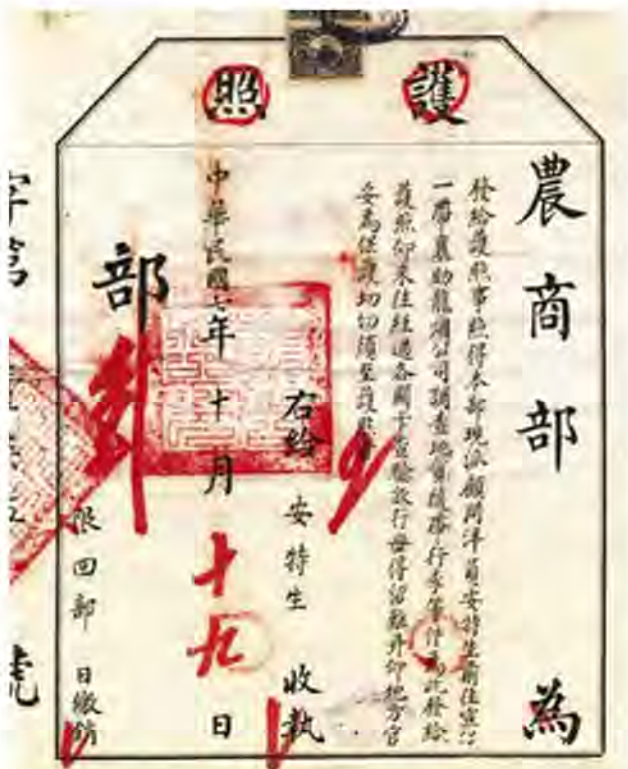 護照
農商部 為
發給護照事照得本部現派顧問洋員安特生前往宣
一帶襄助龍公司調查地質攜帶行李等件為此發給
護照仰來往經過各關卡查驗放行毋得留難并仰地方官
妥為保護切切須至護照
右給 安特生 收執
中華民國七年十月十九日
部
限回部日繳銷
字第 號